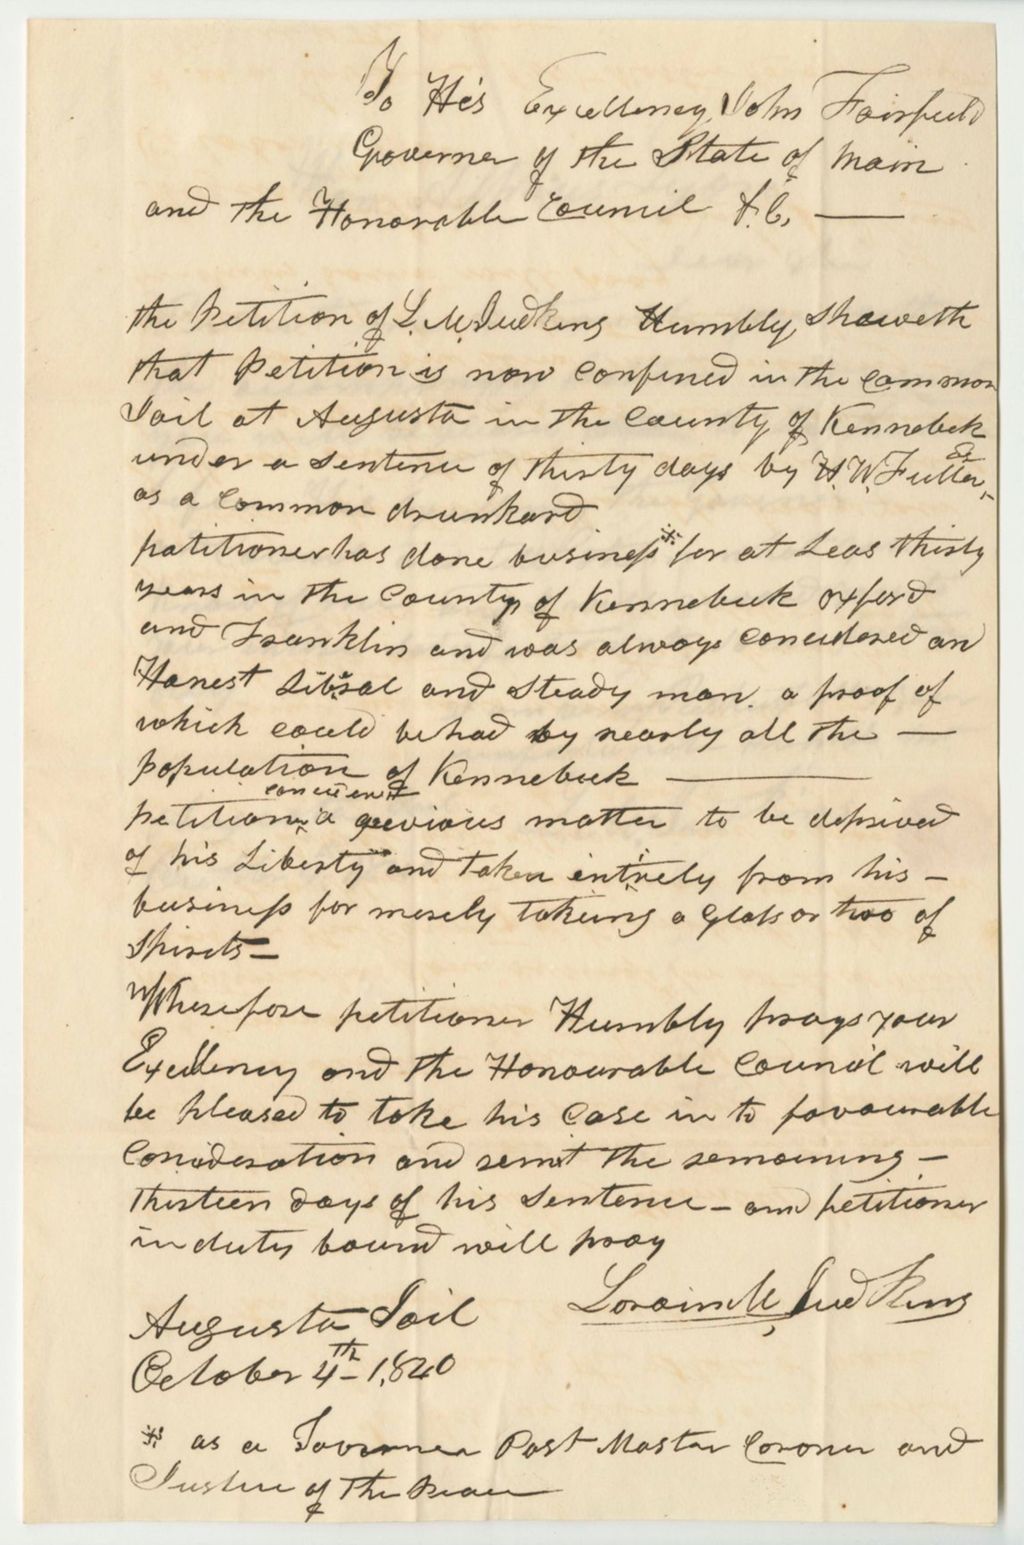 To His Excellency John Fairfield
Governer of the State of Main
and the Honorable Council &.C,
the Petition of L. M. Judkins Humbly Sheweth
that Petition is now confined in the common
Jail at Augusta in the County of Kennebek
under a Sentence of thirty days by H. W. Fuller Esq
as a common drunkard
patitioner has done business * for at Leas thirty
years in the County of Kennebeek oxford
and Franklin and was always concidered an
Honest Liberal and Steady man. a proof of
which could be had by nearly all the —
population of Kennebeek —
petition conciders it a greivious matter to be deprived
of his Liberty and taken entirely from his —
business for merely takeing a Glass or two of
Spirits —
Wherefore petitioner Humbly prays your
Exellency and the Honourable Council will
be pleased to take his Case in to favourable
Consideration and remit the remaining —
thirteen days of his Sentence — and petitioner
in duty bound will pray
Loraim M Judkins
Augusta Jail
October 4th — 1,840
* as a Taverner Post Master Coroner and
Justice of the Peace